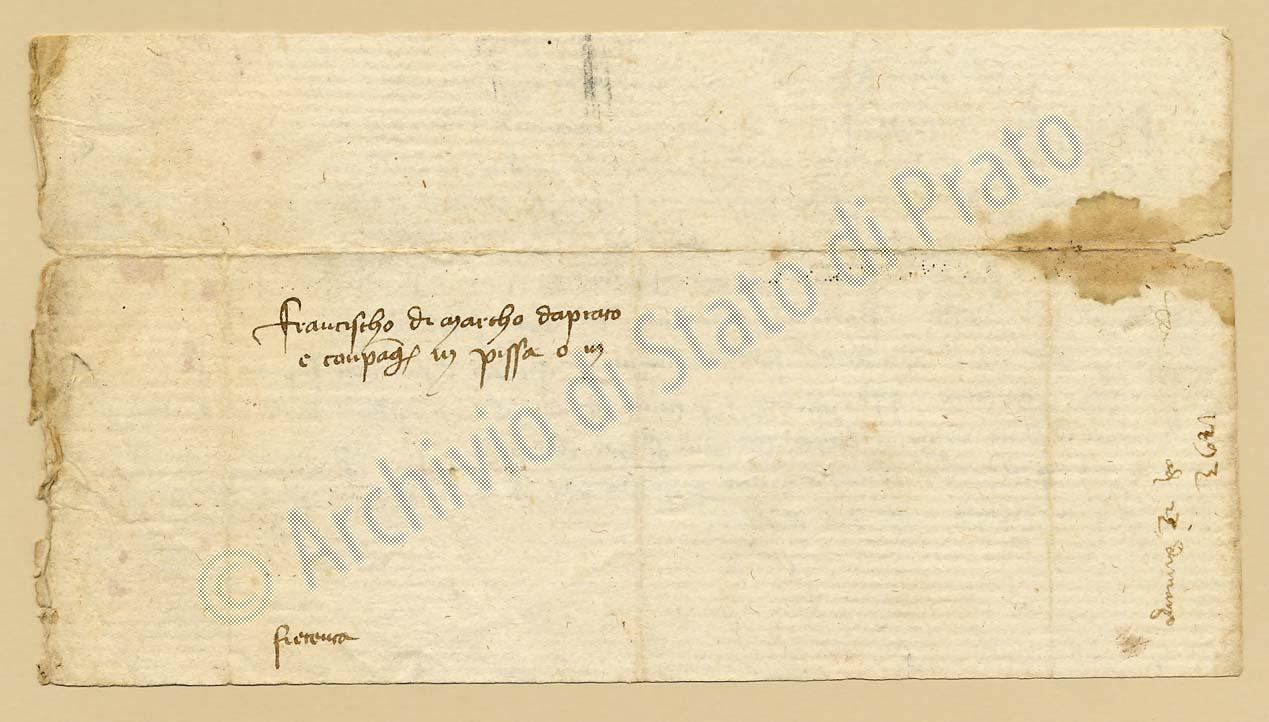 Francischo di Marcho da Prato
e conpag. in Pissa o in
firenca
1393
© Archivio di Stato di Prato